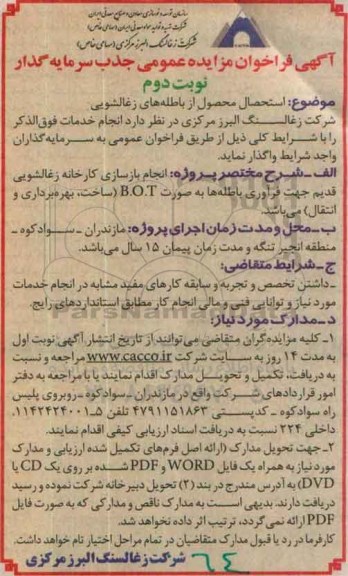 سازمان توسعه و نوسازی معادن و صنایع معدنی ایران
شرکت تهیه و تولید مواد معدنی ایران (سهامی خاص)
شرکت زغالسنگ البرز مرکزی (سهامی خاص)
آگهی فراخوان مزایده عمومی جذب سرمایه گذار
نوبت دوم
موضوع: استحصال محصول از باطله‌های زغالشویی
شرکت زغالسنگ البرز مرکزی در نظر دارد انجام خدمات فوق‌الذکر
را با شرایط کلی ذیل از طریق فراخوان عمومی به سرمایه‌گذاران
واجد شرایط واگذار نماید.
الف - شرح مختصر پروژه: انجام بازسازی کارخانه زغالشویی
قدیم جهت فرآوری باطله‌ها به صورت B.O.T (ساخت، بهره‌برداری و
انتقال) می‌باشد.
ب - محل و مدت زمان اجرای پروژه: مازندران - سوادکوه -
منطقه انجیر تنگه و مدت زمان پیمان ۱۵ سال می‌باشد.
ج - شرایط متقاضی:
- داشتن تخصص و تجربه و سابقه کارهای مفید مشابه در انجام خدمات
مورد نیاز و توانایی فنی و مالی انجام کار مطابق استانداردهای رایج.
د - مدارک مورد نیاز:
۱- کلیه مزایده‌گران متقاضی می‌توانند از تاریخ انتشار آگهی نوبت اول
به مدت ۱۴ روز به سایت شرکت www.cacco.ir مراجعه و نسبت
به دریافت، تکمیل و تحویل مدارک اقدام نمایند یا با مراجعه به دفتر
امور قراردادهای شرکت واقع در مازندران - سوادکوه - روبروی پلیس
راه سوادکوه - کدپستی ۴۷۹۱۱۵۱۸۶۳ تلفن ۵-۰۱۱۴۲۴۲۴۰۰۱
داخلی ۲۲۴ نسبت به دریافت اسناد ارزیابی کیفی اقدام نمایند.
۲- جهت تحویل مدارک (ارائه اصل فرم‌های تکمیل شده ارزیابی و مدارک
مورد نیاز به همراه یک فایل WORD و PDF شده بر روی یک CD یا
DVD) به آدرس مندرج در بند (۲) تحویل دبیرخانه شرکت نموده و رسید
دریافت دارند. بدیهی است به مدارک ناقص و مدارکی که به صورت فایل
PDF ارائه نمی گردد، ترتیب اثر داده نخواهد شد.
کارفرما در رد یا قبول مدارک متقاضیان در تمام مراحل اختیار تام خواهد داشت.
شرکت زغالسنگ البرز مرکزی